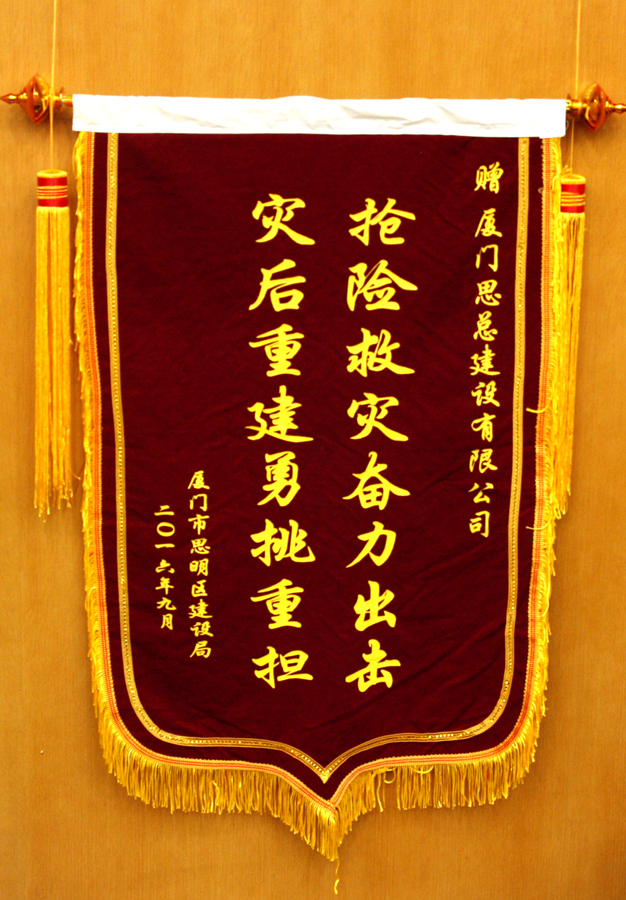 赠 厦门思总建设有限公司
抢险救灾奋力出击
灾后重建勇挑重担
厦门市思明区建设局
二〇一六年九月